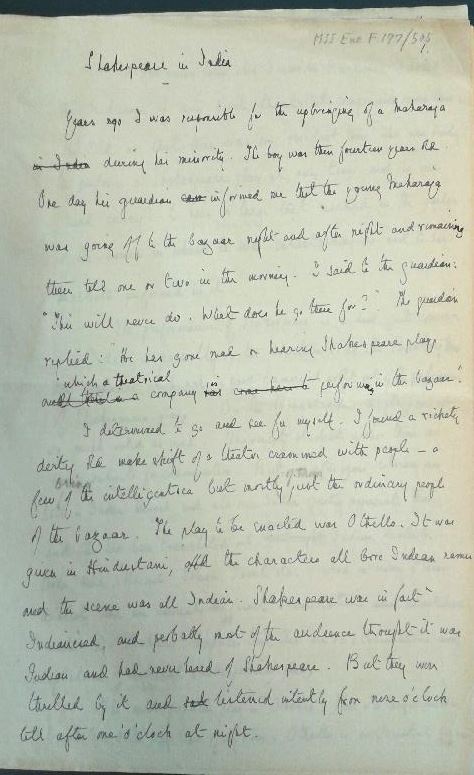 MSS Eur F 197/505
Shakespeare in India
Years ago I was responsible for the upbringing of a Maharaja
in India during his minority. The boy was then fourteen years old
One day his guardian informed me that the young Maharaja
was going off to the bazaar night and after night and remaining
there till one or two in the morning. I said to the guardian:
"This will never do. What does he go there for?" The guardian
replied: "He has gone mad on hearing Shakespeare plays
which a theatrical
company has come here to performing in the bazaar".
I determined to go and see for myself. I found a rickety
dirty old make shift of a theatre crammed with people – a
few of the intelligentsia but mostly just the ordinary people
of the bazaar. The play to be enacted was Othello. It was
given in Hindustani, and the characters all bore Indian names
and the scene was all Indian. Shakespeare was in fact
Indianised, and probably most of the audience thought it was
Indian and had never heard of Shakespeare. But they were
thrilled by it and sat listened intently from nine o'clock
till after one o'clock at night.